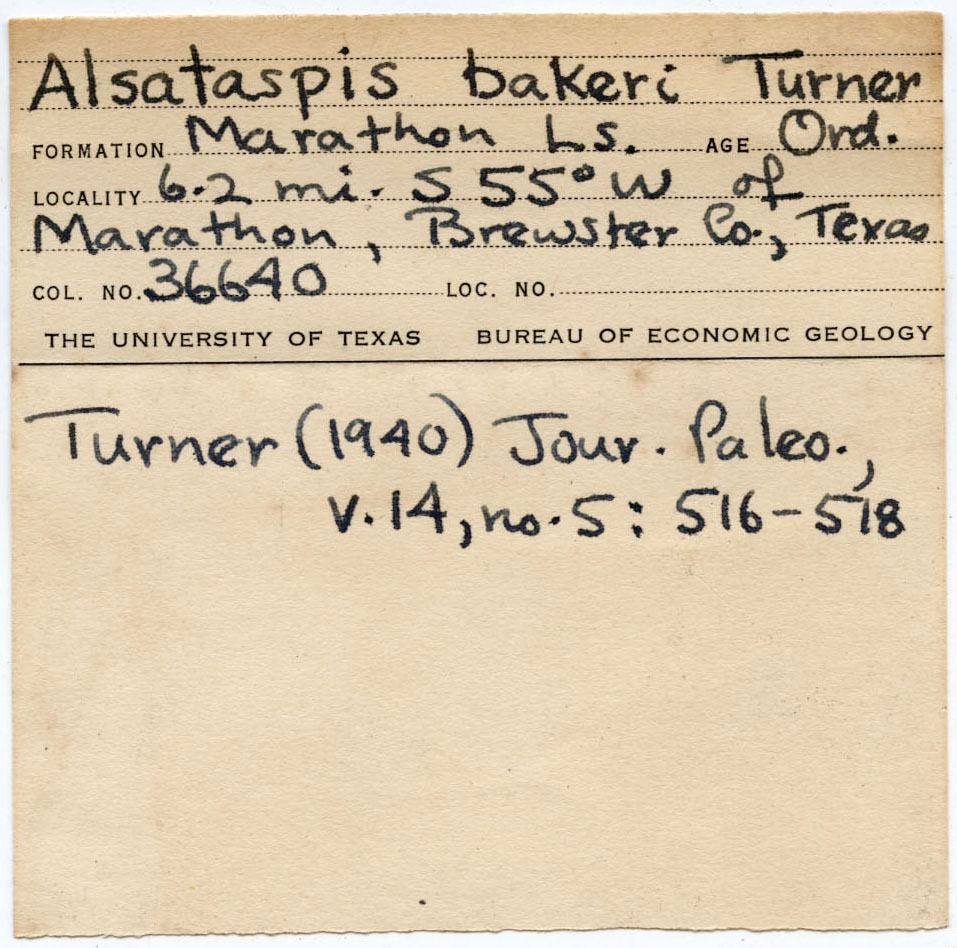 Alsataspis bakeri Turner
FORMATION Marathon Ls. AGE Ord.
LOCALITY 6.2 mi. S 55° W of
Marathon, Brewster Co., Texas
COL. NO. 36640 LOC. NO.
THE UNIVERSITY OF TEXAS BUREAU OF ECONOMIC GEOLOGY
Turner (1940) Jour. Paleo.,
v. 14, no. 5: 516-518